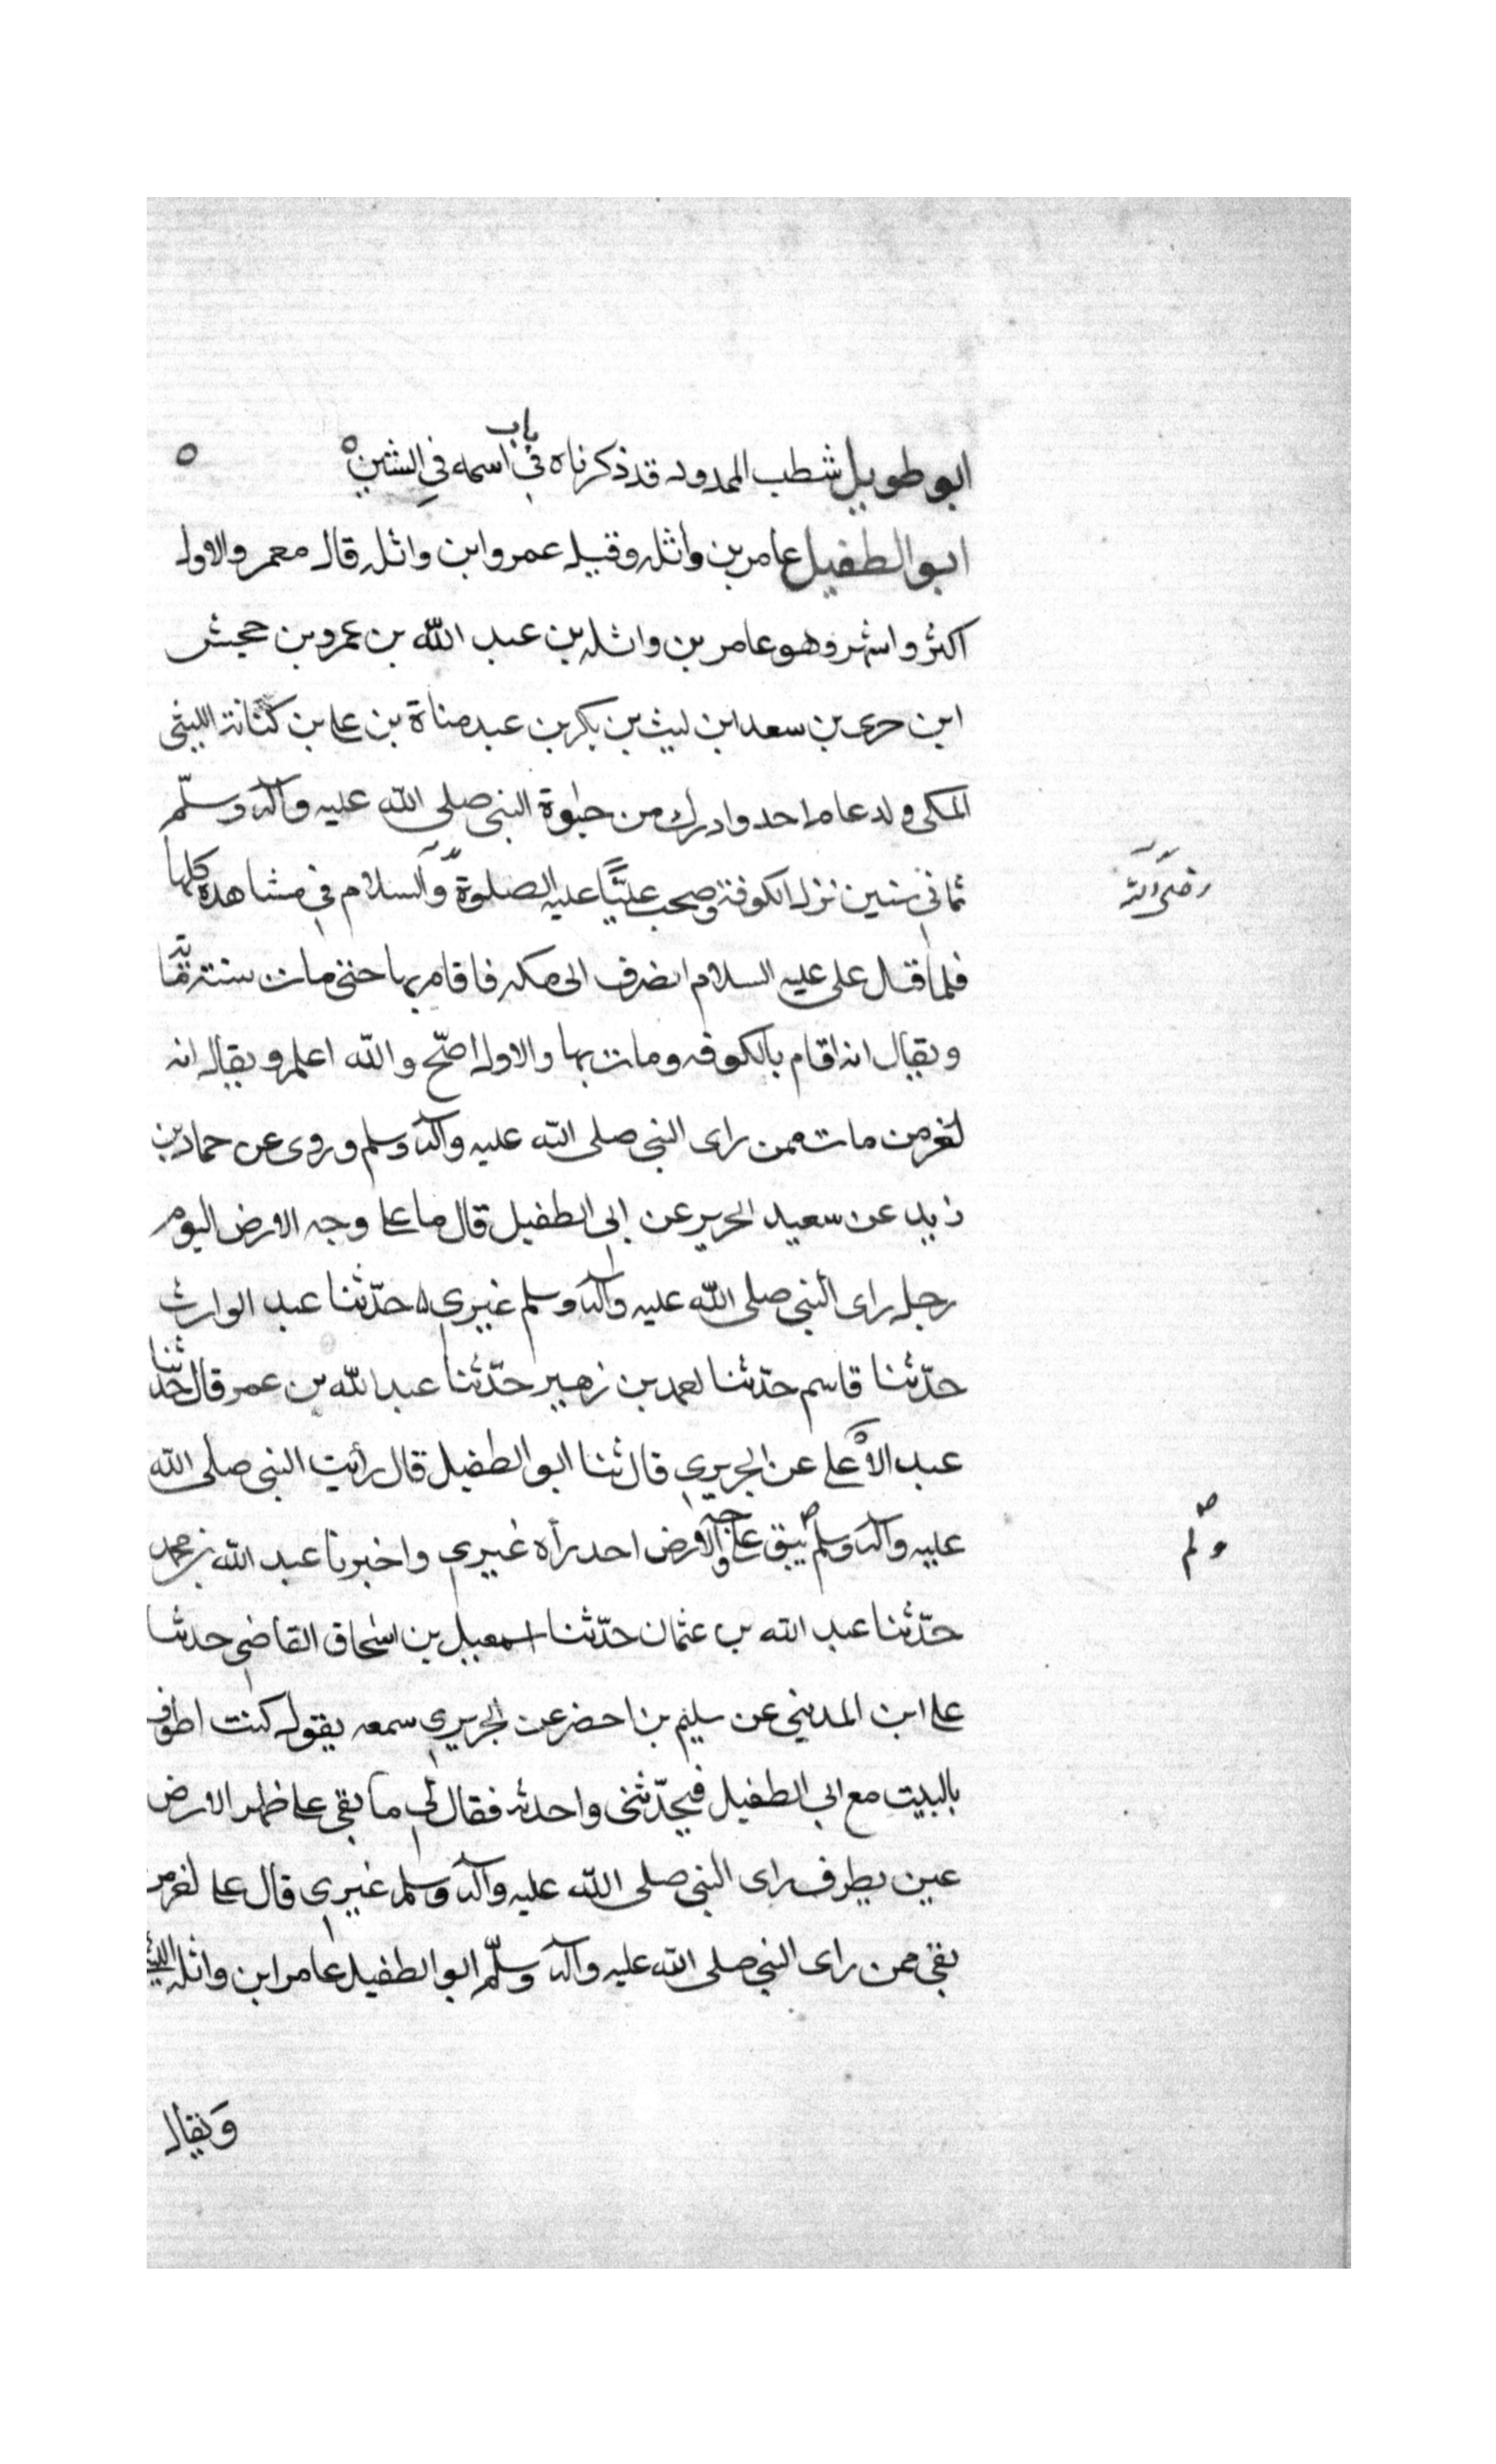 ابو طويل شطب الممدود قد ذكرناه في باب اسمه في الشين ه
ابو الطفيل عامر بن واثله وقيل عمرو ابن واثله قال معمر والاول
اكثر واشهر وهو عامر بن واثله بن عبد الله بن عمرو بن جحش
ابن جرى بن سعد ابن ليث بن بكر بن عبد مناة بن على بن كنانة الليثي
المكى ولد عام احد وادرك من حيوة النبي صلى الله عليه وآله وسلّم
ثماني سنين نزل الكوفة وصحب عليًّا عليه الصلوة والسلام في مشاهده كلها
رضى الله
فلما قتل على عليه السلام انصرف الى مكه فاقام بها حتى مات سنة
ويقال انه اقام بالكوفه ومات بها والاول اصّح والله اعلم ويقال انه
مات ممن راى النبي صلى الله عليه وآله وسلم وروى عن حماد بن
زيد عن سعيد الحرير عن ابي الطفيل قال ما على وجه الارض اليوم
رجل راى النبي صلى الله عليه وآله وسلم غيري ه حدّثنا عبد الوارث
حدّثنا قاسم حدّثنا احمد بن زهير حدّثنا عبد الله بن عمر قال حدّثنا
عبد الأعلى عن الجريري قال ثنا ابو الطفيل قال رأيت النبي صلى الله
عليه وآله وسلم يبق على وجه الارض احد رأه غيري واخبرنا عبد الله بن محمد
ولم
حدّثنا عبد الله بن عثمان حدّثنا اسمعيل بن اسحاق القاضي حدثنا
على ابن المديني عن سليم بن احضر عن الجريري سمعه يقول كنت اطوف
بالبيت مع ابي الطفيل فيحدّثنى واحدثه فقال لي ما بقى على ظهر الارض
عين يطرف راى النبي صلى الله عليه وآله وسلم غيري قال على
بقى ممن راى النبي صلى الله عليه وآله وسلّم ابو الطفيل عامر ابن واثله الليثي
ويقال